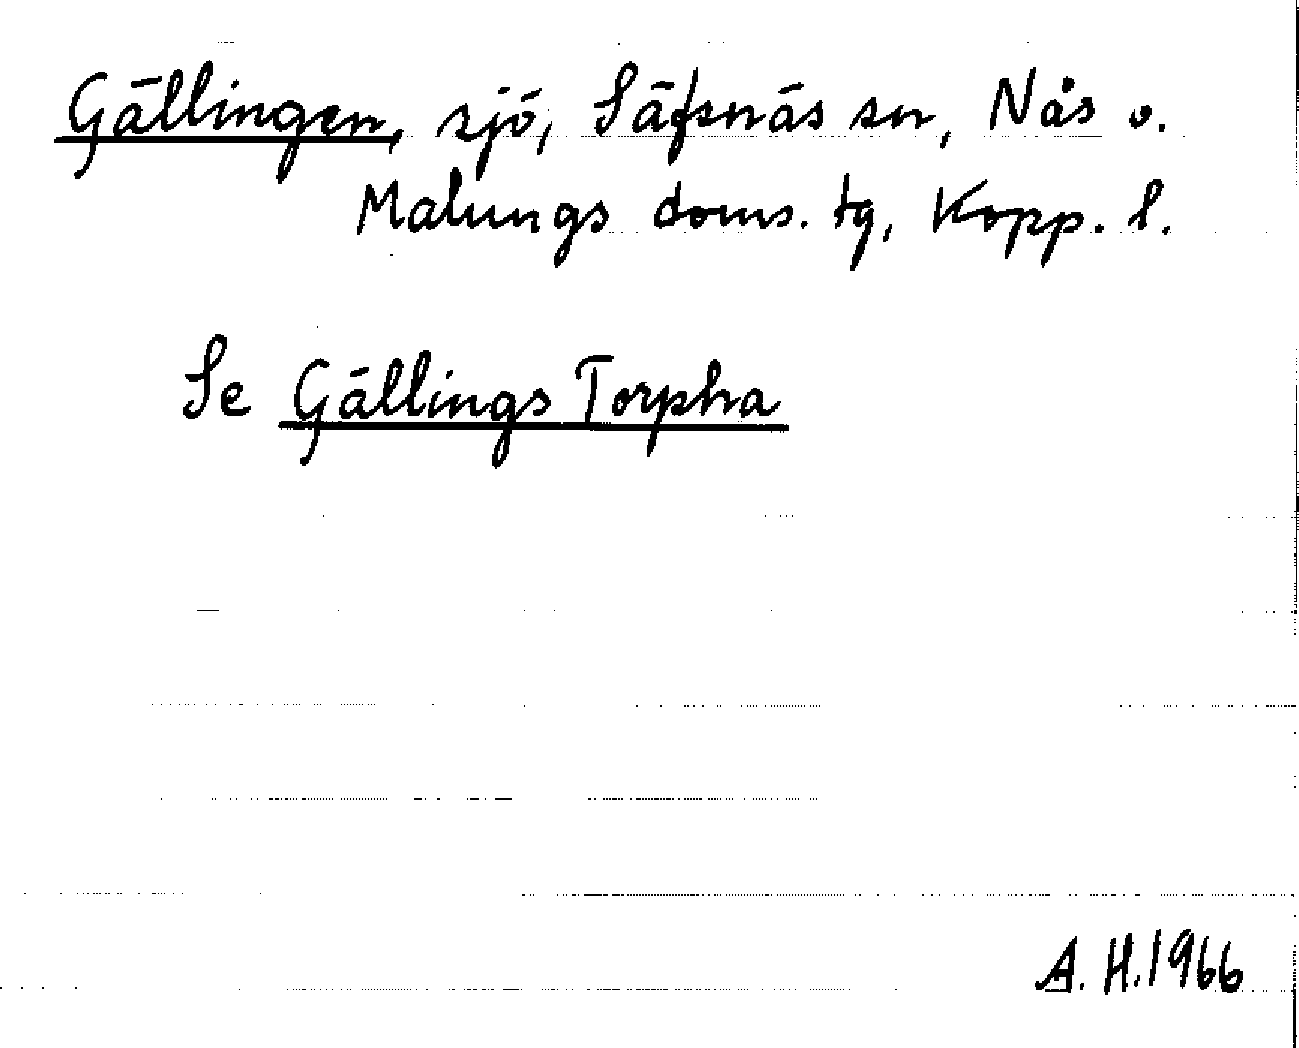 Gällingen, sjö, Säfsnäs sn, Nås o.
Malungs doms. tg, Kopp. l.
Se Gällings Torpha
A. H. 1966